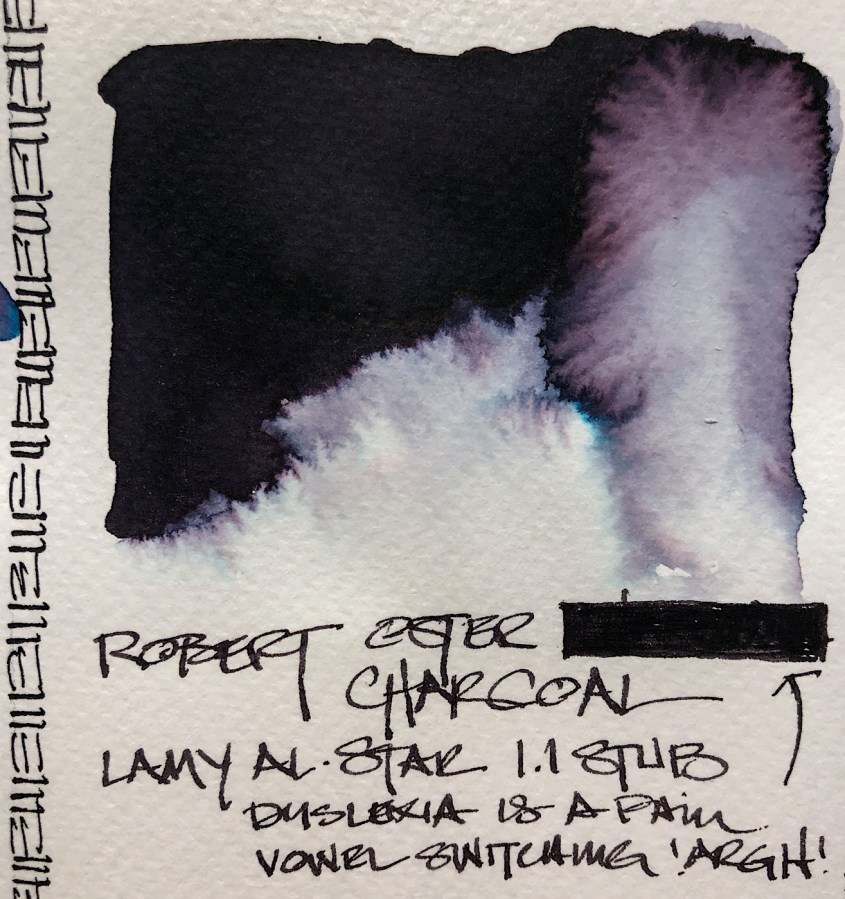 ROBERT OSTER
CHARCOAL
LAMY AL-STAR 1.1 STUB
DYSLEXIA IS A PAIN
VOWEL SWITCHING 'ARGH!